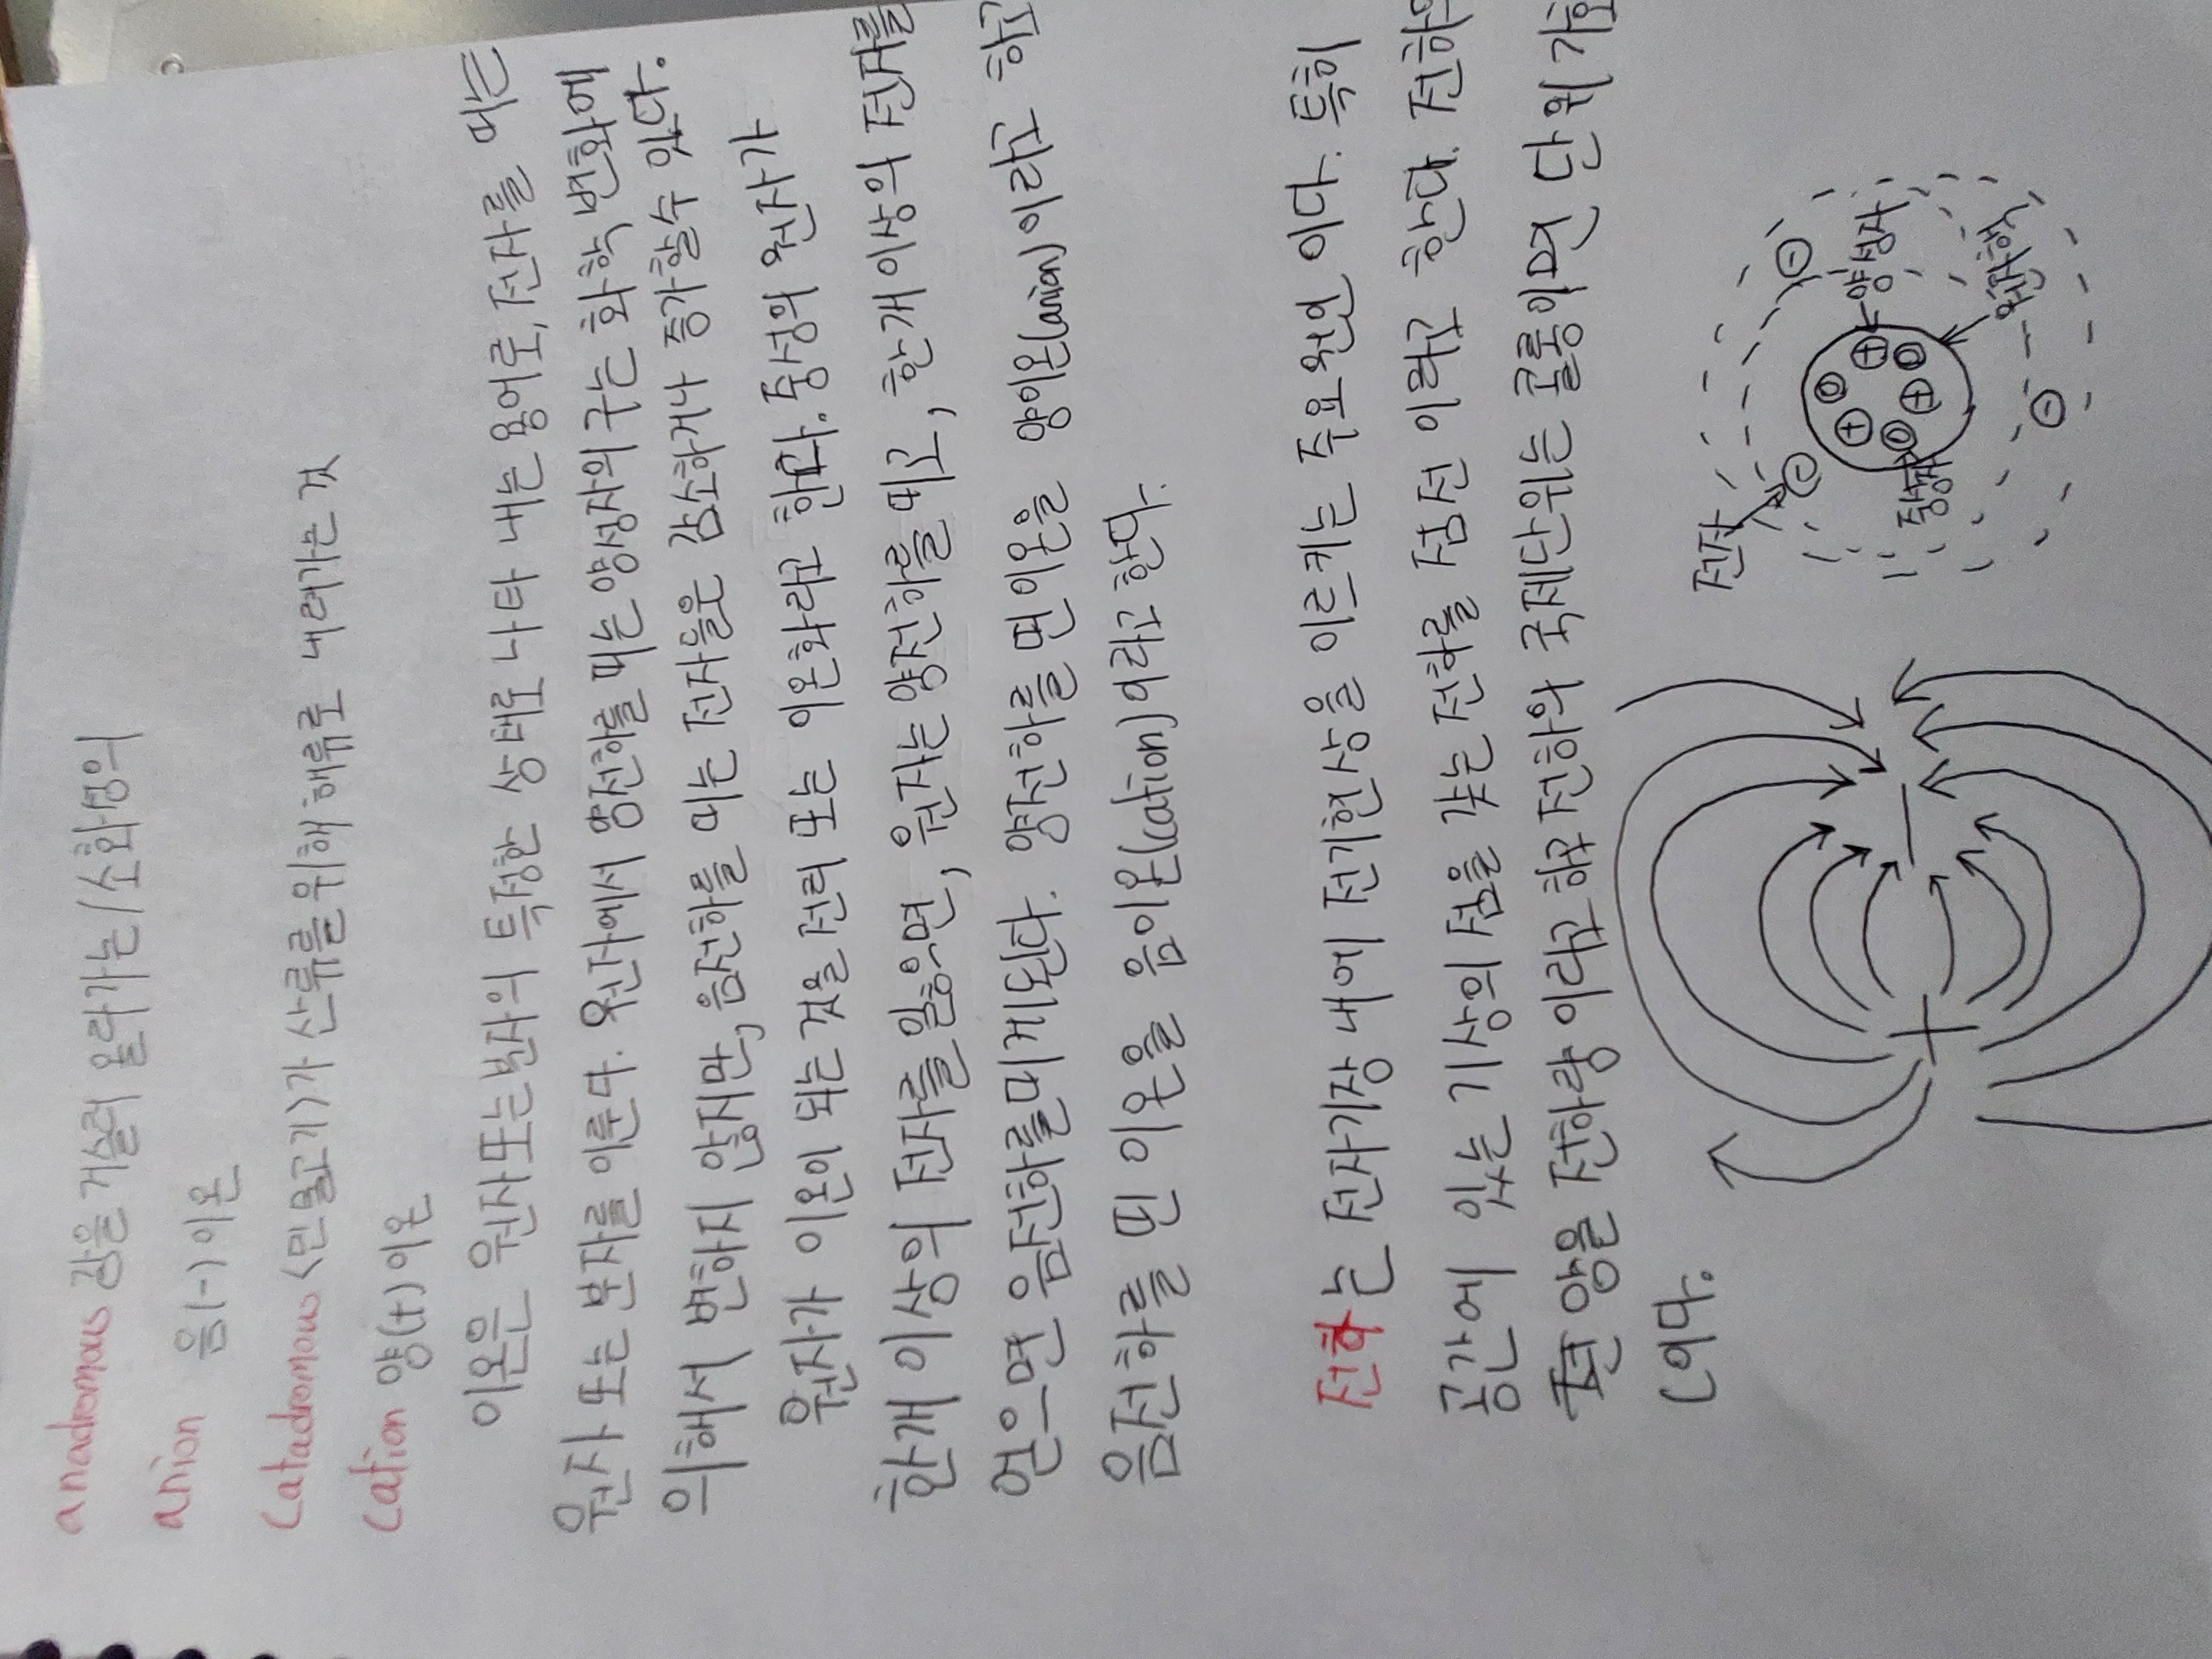 anadromous 강을 거슬러 올라가는/소화성의
anion 음(-)이온
Catadromous <민물고기>가 산류를 위해 해류로 내려가는 것
Cation 양(+)이온
이온은 원자또는분자의 특정한 상태로 나타 내는 용어로, 전자를 띠는
원자 또는 분자를 이룬다. 원자에서 양전하를 띠는 양성자의 구는 화학 변화에
의해서 변하지 않지만, 음전하를 띠는 전자들은 감소하거나 증가할수 있다.
원자가 이온이 되는 것을 전리 또는 이온화라고 한다. 중성의 원자가
한개 이상의 전자를 잃으면, 원자는 양전하를 띠고, 한개 이상의 전자를
얻으면 음전하를띠게된다. 양전하를 띤이온을 양이온(anion)이라고 하고
음전하를 띤 이온을 음이온(cation)이라고 한다.
전하는 전자기장 내에 전기현상을 이르키는 주요원인 이다. 특히
공간에 있는 기상의 점을 갖는 전하를 점전 이라고 한다. 전하의
양을 전하량 이라고 하고 전하의 국제단위는 쿨롱이며 단위 기호
C이다.
전자
양성자
중성자
원자핵
+
−